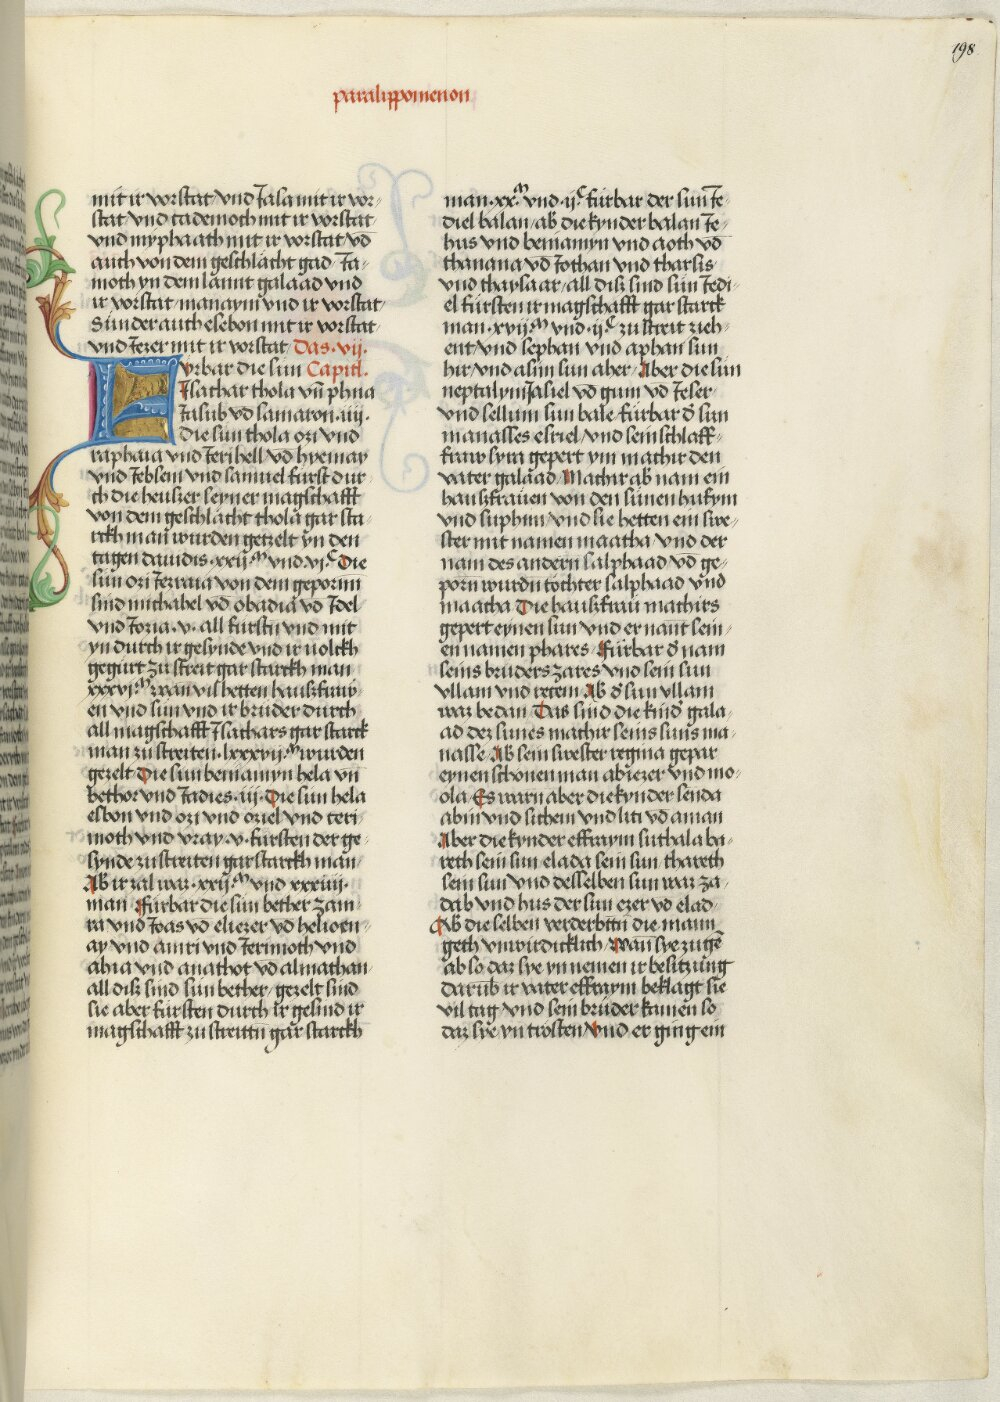 198
paralippomenon
mit ir vorstat vnd Jasa mit ir vor-
stat vnd cademoth mit ir vorstat
vnd myphaath mit ir vorstat vd
auch von dem geschlächt gad Ja-
moth yn dem lannt galaad vnd
ir vorstat manaym vnd ir vorstat
Sunder auch esebon mit ir vorstat
vnd Jezer mit ir vorstat Das .vij.
Fvrbar die sün Capitl.
Jsachar thola vn phua
Jasub vd samaron .iiij.
die sün thola ozi vnd
raphaia vnd Jerihell vd hyemay
vnd Jebsem vnd samuel fürst dur-
ch die heuser seyner magschafft
von dem geschlächt thola gar sta-
rckh man wurden getzelt yn den
tagen dauidis .xxij.m vnd .vj.c Die
sün ozi Jezraia von dem gepornn
sind michahel vd obadia vd Johel
vnd Jozia .v. all fürstn vnd mit
yn durch ir gesynde vnd ir volckh
gegürt zu streit gar starckh man
xxxvj.m wan vil hetten hauszfraw-
en vnd sün vnd ir brüder durch
all magschafft Jsachars gar starck
man zu streiten .lxxxvij.m wurden
gezelt Die sün beniamyn bela vn
bethor vnd Jadies .iij. Die sün bela
esbon vnd ozi vnd oziel vnd Jeri-
moth vnd vray .v. fürsten der ge-
synde zu streiten gar starckh man
Ab ir zal war .xxij.m vnd xxxiiij.
man Fürbar die sün bether Zam-
ra vnd Joas vd eliezer vd helioen-
ay vnd amri vnd Jerimoth vnd
abia vnd anathot vd almathan
all disz sind sün bether gezelt sind
sie aber fürsten durch ir gesind ir
magschafft zu streittn gar starckh
man .xx.m vnd .ij.c fürbar der sun Je-
diel balan ab die kynder balan Je-
hus vnd beniamyn vnd aoth vd
thanana vd Jothan vnd tharsis
vnd thaysaar all disz sind sün Jedi-
el fürsten ir magschafft gar starck
man .xvij.m vnd .ij.c zu streit zieh-
ent vnd sephan vnd aphan sun
hir vnd asim sun aher Aber die sün
neptalym Jasiel vd gum vd Jeser
vnd sellum sun bale fürbar d sun
manasses esriel vnd sein schlaff-
fraw syra gepert ym machir den
vater galaad Machir ab nam ein
hauszfrauen von den sünen hufym
vnd suphm vnd sie hetten ein swe-
ster mit namen maacha vnd der
nam des andern salphaad vd ge-
porn wurdn töchter salphaad vnd
maacha Die hauszfraw machirs
gepert eynen sun vnd er nant sein-
en namen phares Fürbar d nam
seins bruders zares vnd sein sun
vllam vnd recem Ab d sun vllam
war bedan Das sind die kind gala-
ad dez sunes machir seins suns ma-
nasse Ab sein swester regina gepar
eynen schönen man abiezer vnd mo-
ola Es warn aber die kynder semda
abin vnd sichem vnd liti vd aman
Aber die kynder effraym suthala ba-
reth sein sun elada sein sun thareth
sein sun vnd desselben sun war za-
dab vnd hus der sun ezer vd elad
Ab die selben verderbttn die mann
geth vnwirdicklich wan sye zugē
ab so daz sye yn nemen ir besitzung
darüb ir vater effraym beklagt sie
vil tag vnd sein bruder kamen so
daz sye yn trosten Vnd er ging ein